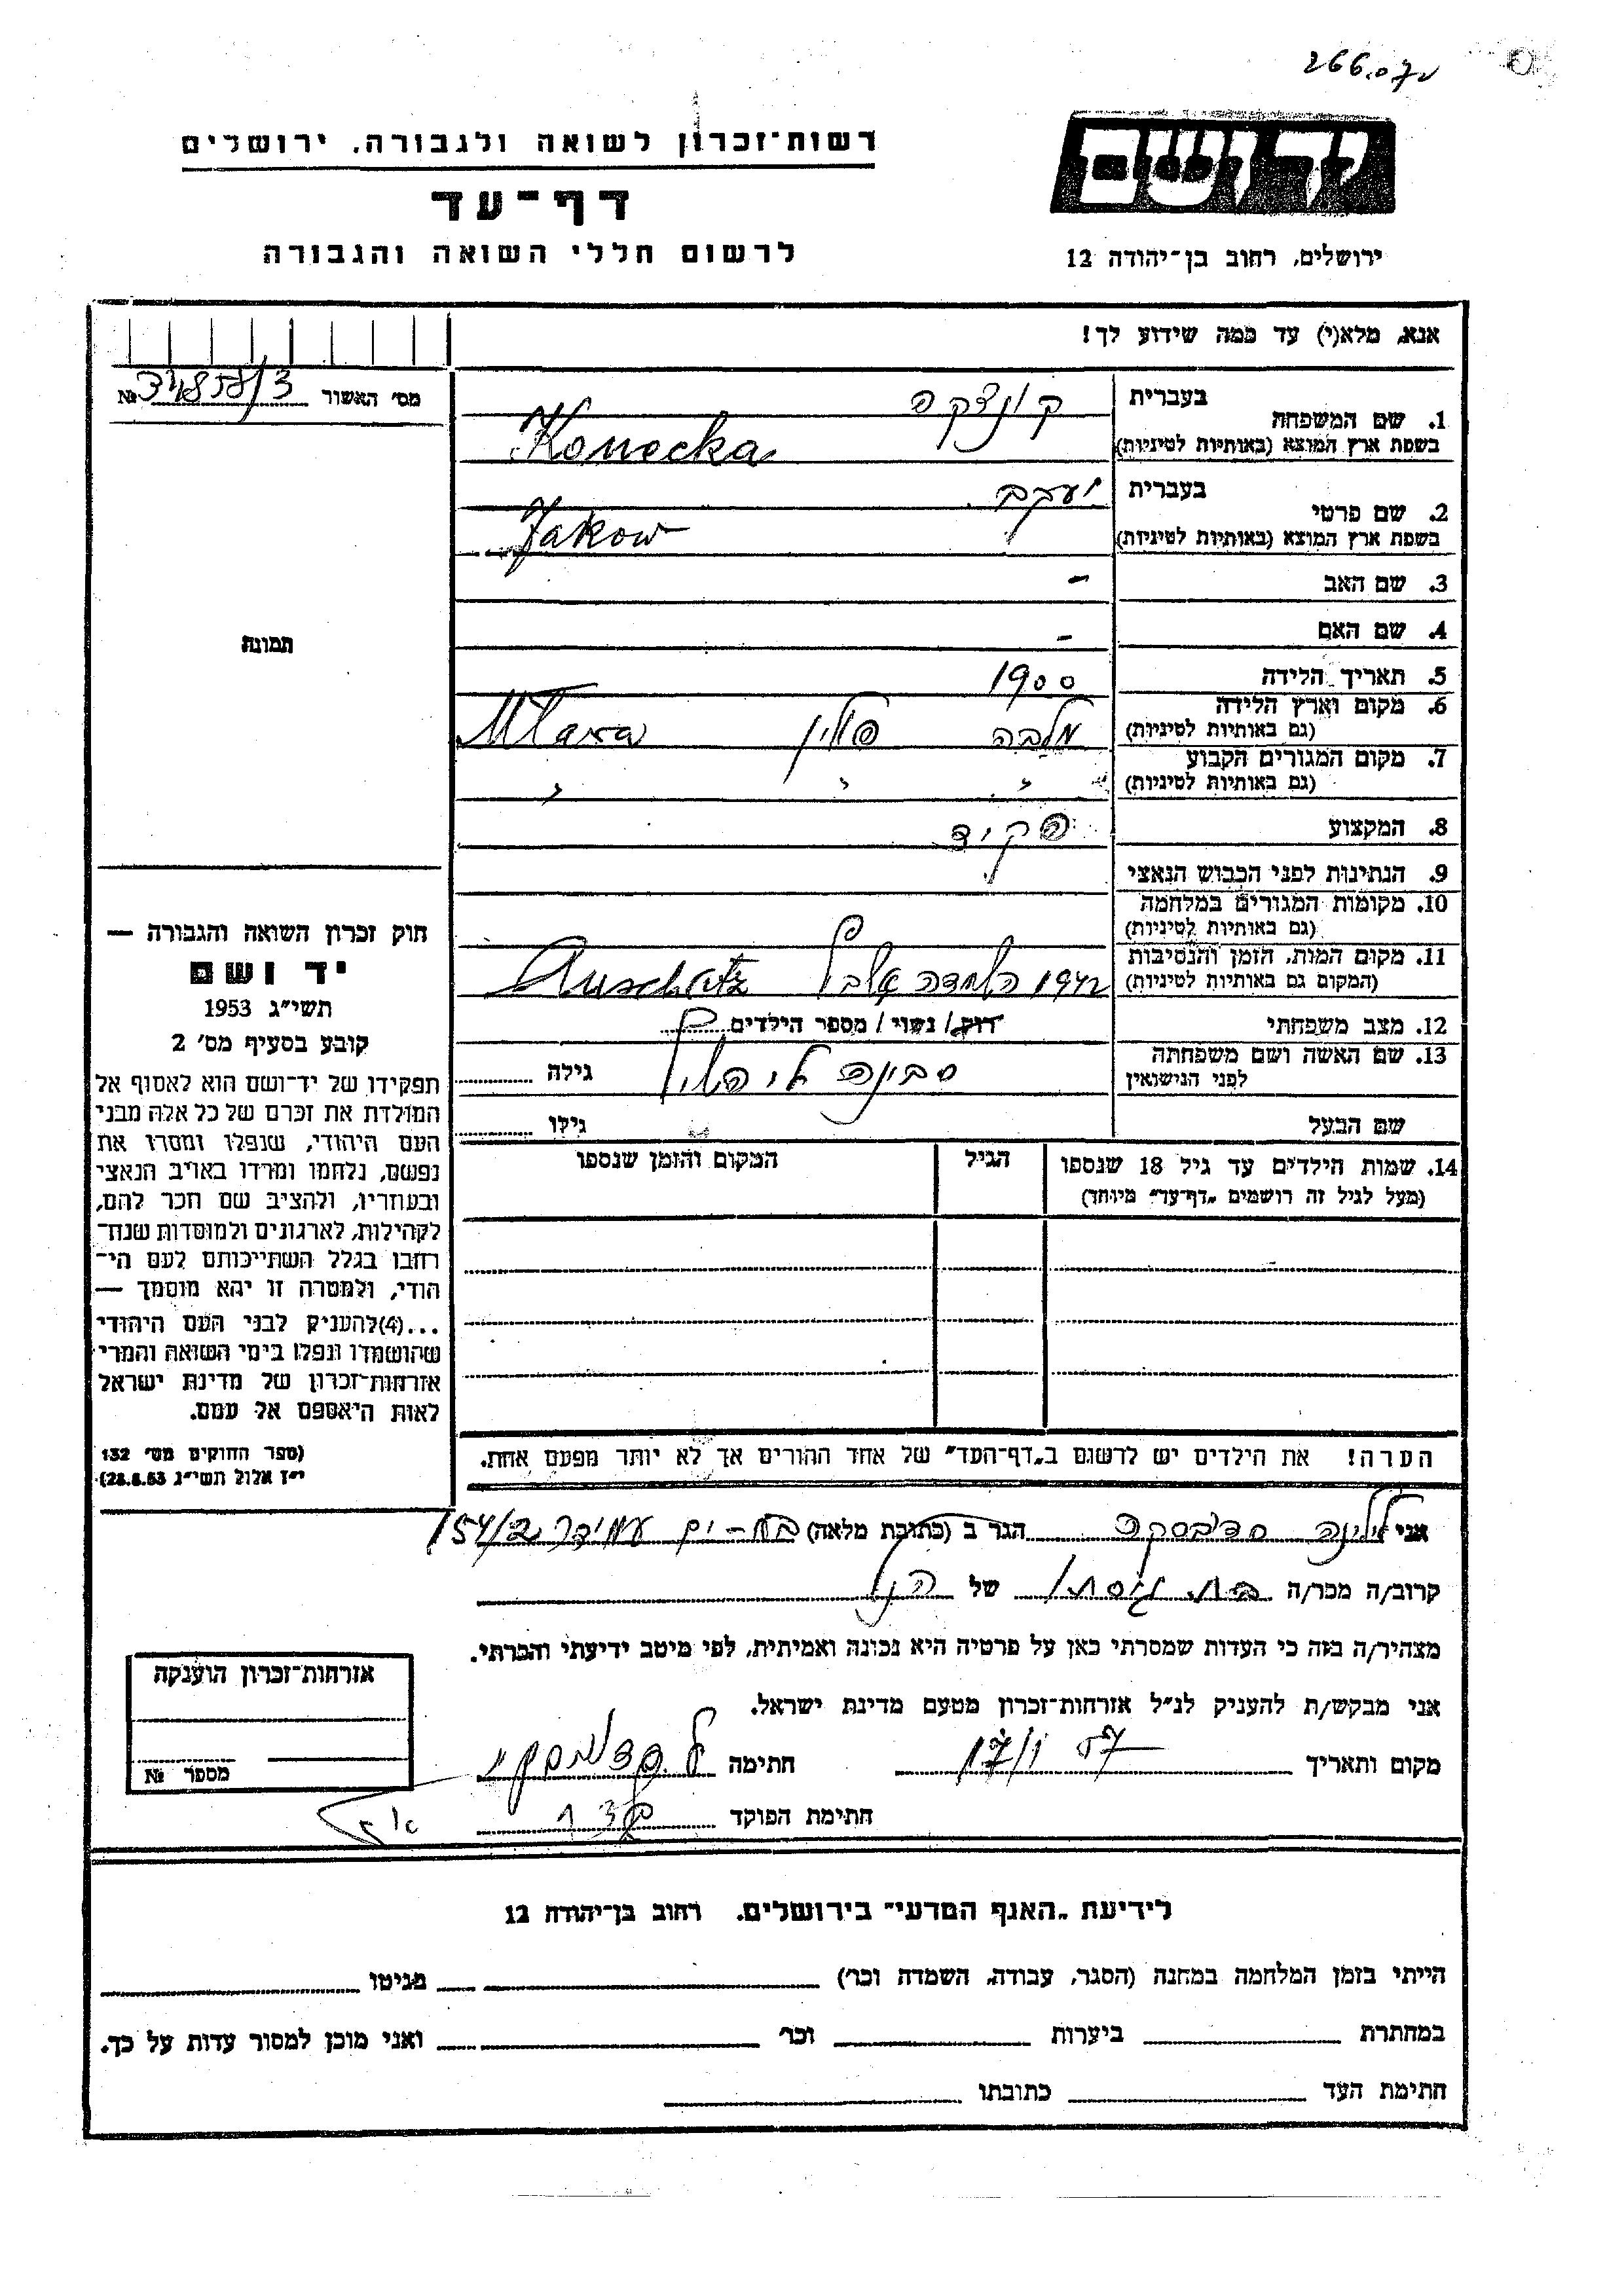 266.07
ידושם
ירושלים, רחוב בן־יהודה 12
רשות־זכרון לשואה ולגבורה, ירושלים
דף־עד
לרשום חללי השואה והגבורה
אנא, מלא(י) עד כמה שידוע לך!
מס' האשור №
1. שם המשפחה בעברית
בשפת ארץ המוצא (באותיות לטיניות) Konecka
2. שם פרטי בעברית יעקב
בשפת ארץ המוצא (באותיות לטיניות) Jakow
3. שם האב -
4. שם האם -
5. תאריך הלידה 1900
6. מקום וארץ הלידה
(גם באותיות לטיניות) מלבה פולין Mlawa
7. מקום המגורים הקבוע
(גם באותיות לטיניות) " " "
8. המקצוע פקיד
9. הנתינות לפני הכבוש הנאצי
10. מקומות המגורים במלחמה
(גם באותיות לטיניות)
11. מקום המות, הזמן והנסיבות
(המקום גם באותיות לטיניות) 1942
12. מצב משפחתי רוק/ נשוי/ מספר הילדים
13. שם האשה ושם משפחתה
לפני הנישואין גילה
שם הבעל גילו
14. שמות הילדים עד גיל 18 שנספו
(מעל לגיל זה רושמים „דף־עד" מיוחד)
הגיל
המקום והזמן שנספו
הערה! את הילדים יש לרשום ב„דף־העד" של אחד ההורים אך לא יותר מפעם אחת.
תמונה
חוק זכרון השואה והגבורה —
יד ושם
תשי"ג 1953
קובע בסעיף מס' 2
תפקידו של יד־ושם הוא לאסוף אל
המולדת את זכרם של כל אלה מבני
העם היהודי, שנפלו ומסרו את
נפשם, נלחמו ומרדו באויב הנאצי
ובעוזריו, ולהציב שם וזכר להם,
לקהילות, לארגונים ולמוסדות שנח־
רבו בגלל השתייכותם לעם הי־
הודי, ולמטרה זו יהא מוסמך —
...(4)להעניק לבני העם היהודי
שהושמדו ונפלו בימי השואה והמרי
אזרחות־זכרון של מדינת ישראל
לאות היאספם אל עמם.
(ספר החוקים מס' 132
י"ז אלול תשי"ג 28.8.53)
אני הגר ב (כתובת מלאה) בת-ים עמידר
קרוב/ה מכר/ה בת גיסתו של הנ"ל
מצהיר/ה בזה כי העדות שמסרתי כאן על פרטיה היא נכונה ואמיתית, לפי מיטב ידיעתי והכרתי.
אני מבקש/ת להעניק לנ"ל אזרחות־זכרון מטעם מדינת ישראל.
מקום ותאריך חתימה
חתימת הפוקד
אזרחות־זכרון הוענקה
מספר №
לידיעת „האגף המדעי" בירושלים. רחוב בן־יהודה 12
הייתי בזמן המלחמה במחנה (הסגר, עבודה, השמדה וכו') בגיטו
במחתרת ביערות וכו' ואני מוכן למסור עדות על כך.
חתימת העד כתובתו